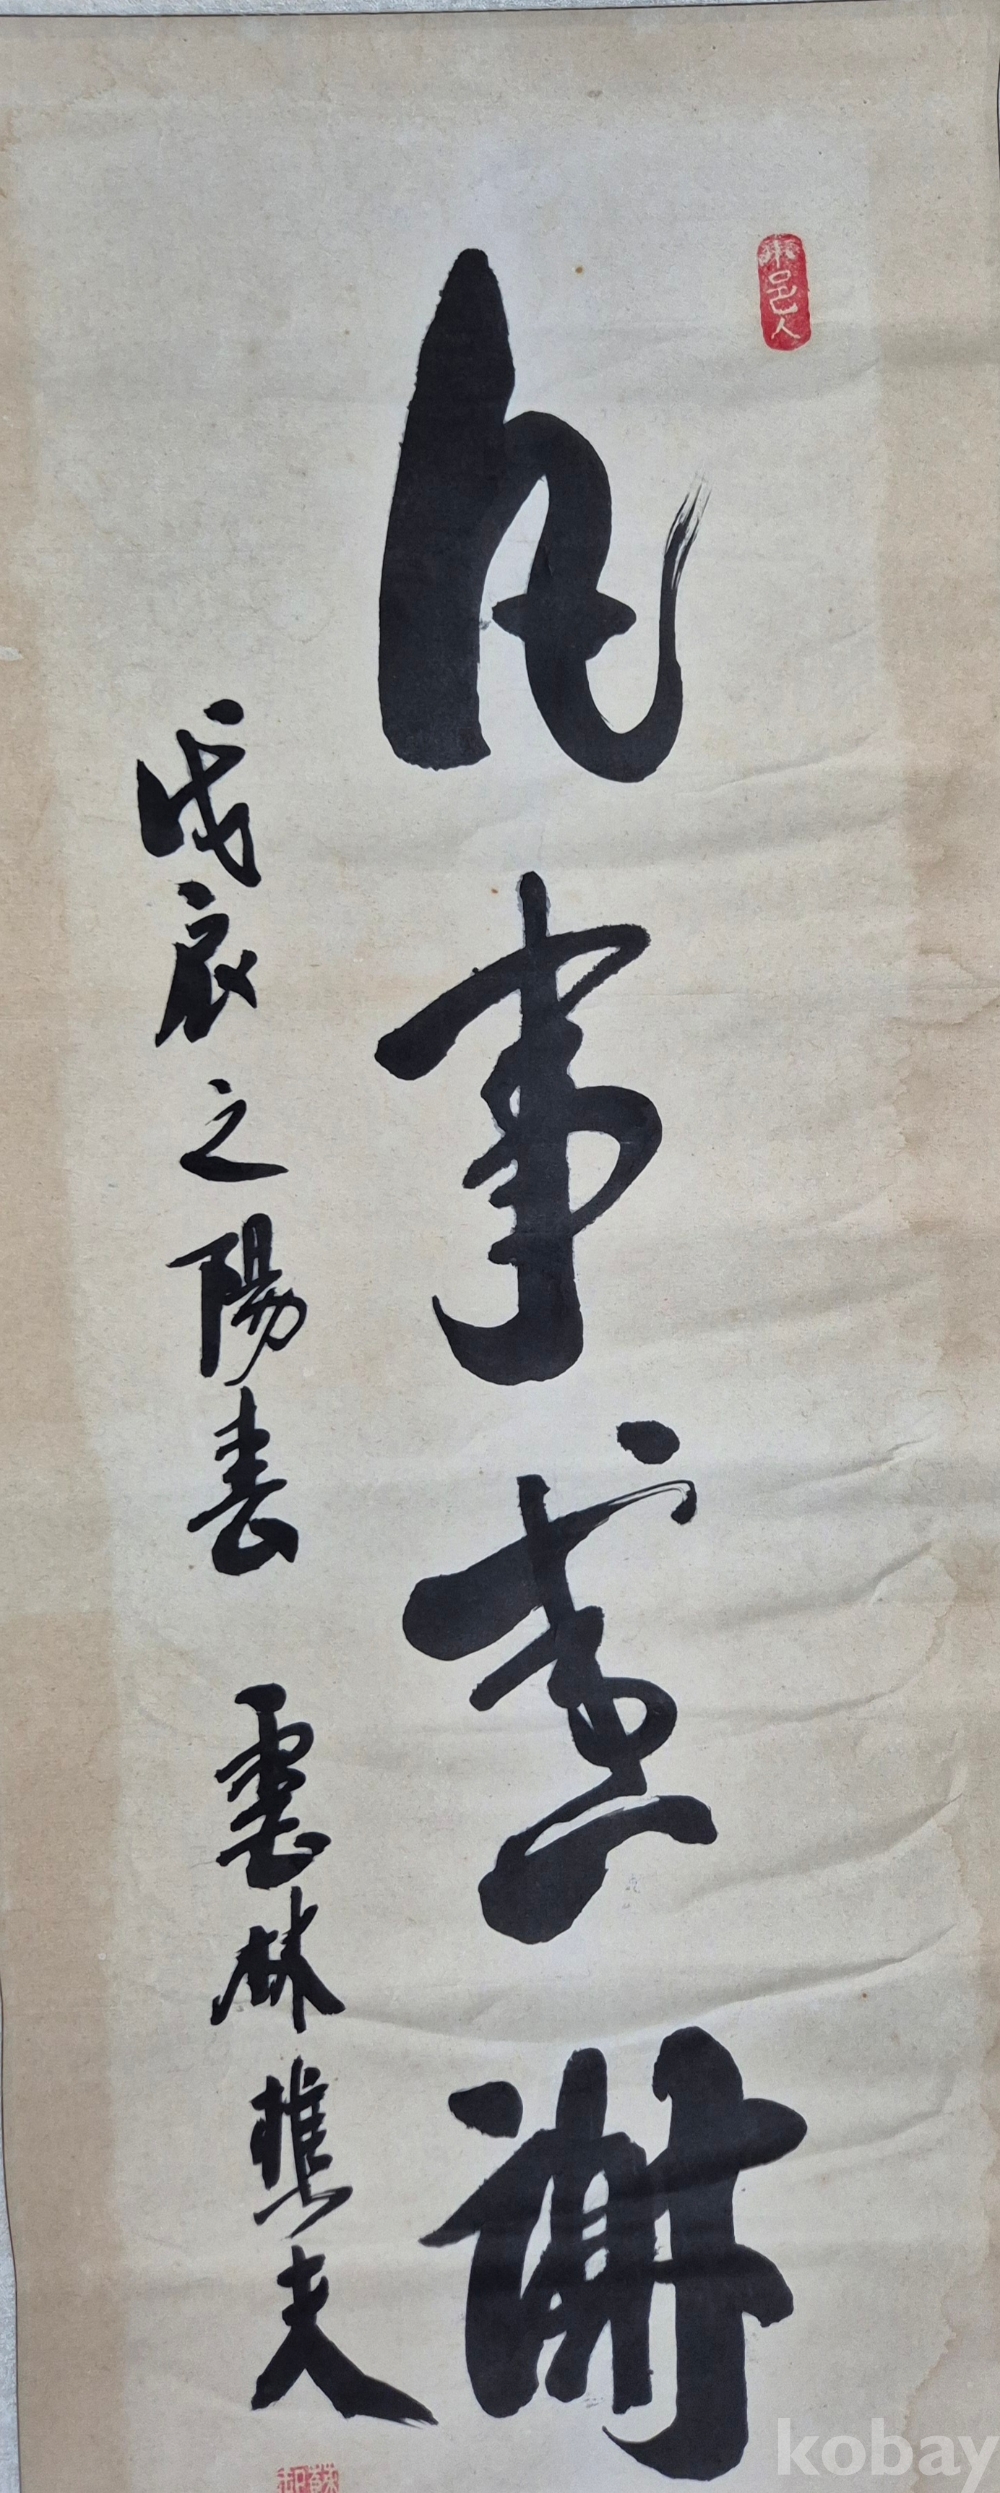 邑人
凡事感謝
戊辰之陽春 雲林樵夫
kobay